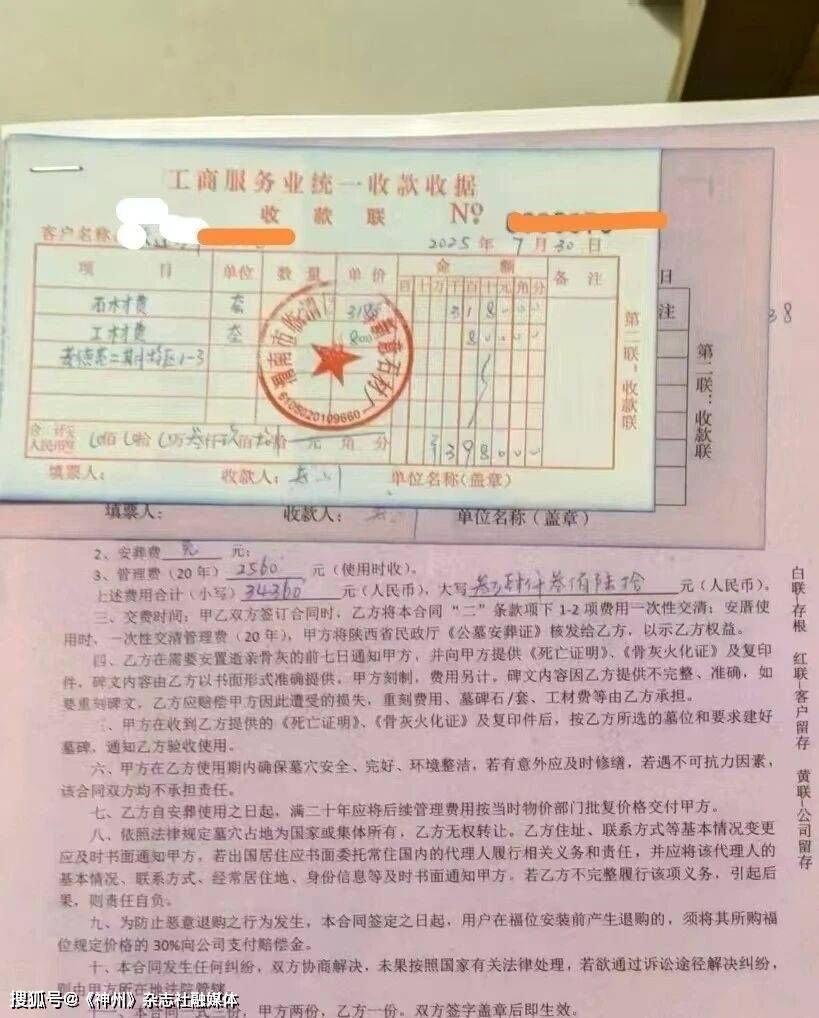 工商服务业统一收款收据
收 款 联 №
客户名称: 2025 年 7 月 30 日
项 目 单位 数量 单价 金 额 备 注
百 十 万 千 百 十 元 角 分
石材费 套 3180 3 1 8 0 0 0
工材费 套 800 8 0 0 0 0
二期 区1-3
合计
人民币 佰 拾 万 叁仟玖佰捌拾 元 角 分 ¥ 3 9 8 0 0 0
填票人: 收款人: 单位名称(盖章)
第二联:收款联
渭南市临渭 石材厂
6105020109660
日
注
38
第二联:收款联
填票人: 收款人: 单位名称(盖章)
2、安葬费 元;
3、管理费(20年) 2560 元(使用时收)。
上述费用合计(小写) 34360 元(人民币),大写 叁万肆仟叁佰陆拾 元(人民币)。
三、交费时间:甲乙双方签订合同时,乙方将本合同“二”条款项下1-2项费用一次性交清;安厝使
用时、一次性交清管理费(20年),甲方将陕西省民政厅《公墓安葬证》核发给乙方,以示乙方权益。
四、乙方在需要安置逝亲骨灰的前七日通知甲方,并向甲方提供《死亡证明》、《骨灰火化证》及复印
件,碑文内容由乙方以书面形式准确提供,甲方刻制,费用另计。碑文内容因乙方提供不完整、准确,如
要重刻碑文,乙方应赔偿甲方因此遭受的损失,重刻费用、墓碑石/套、工材费等由乙方承担。
、甲方在收到乙方提供的《死亡证明》、《骨灰火化证》及复印件后,按乙方所选的墓位和要求建好
墓碑,通知乙方验收使用。
六、甲方在乙方使用期内确保墓穴安全、完好、环境整洁,若有意外应及时修缮,若遇不可抗力因素,
该合同双方均不承担责任。
七、乙方自安葬使用之日起,满二十年应将后续管理费用按当时物价部门批复价格交付甲方。
八、依照法律规定墓穴占地为国家或集体所有,乙方无权转让。乙方住址、联系方式等基本情况变更
应及时书面通知甲方,若出国居住应书面委托常住国内的代理人履行相关义务和责任,并应将该代理人的
基本情况、联系方式、经常居住地、身份信息等及时书面通知甲方。若乙方不完整履行该项义务,引起后
果,则责任自负。
九、为防止恶意退购之行为发生,本合同签定之日起,用户在福位安装前产生退购的,须将其所购福
位规定价格的30%向公司支付赔偿金。
十、本合同发生任何纠纷,双方协商解决,未果按照国家有关法律处理,若欲通过诉讼途径解决纠纷,
则由甲方所在地法院管辖。
十一、本合同一式三份,甲方两份,乙方一份。双方签字盖章后即生效。
白联-存根 红联-客户留存 黄联-公司留存
搜狐号@《神州》杂志社融媒体